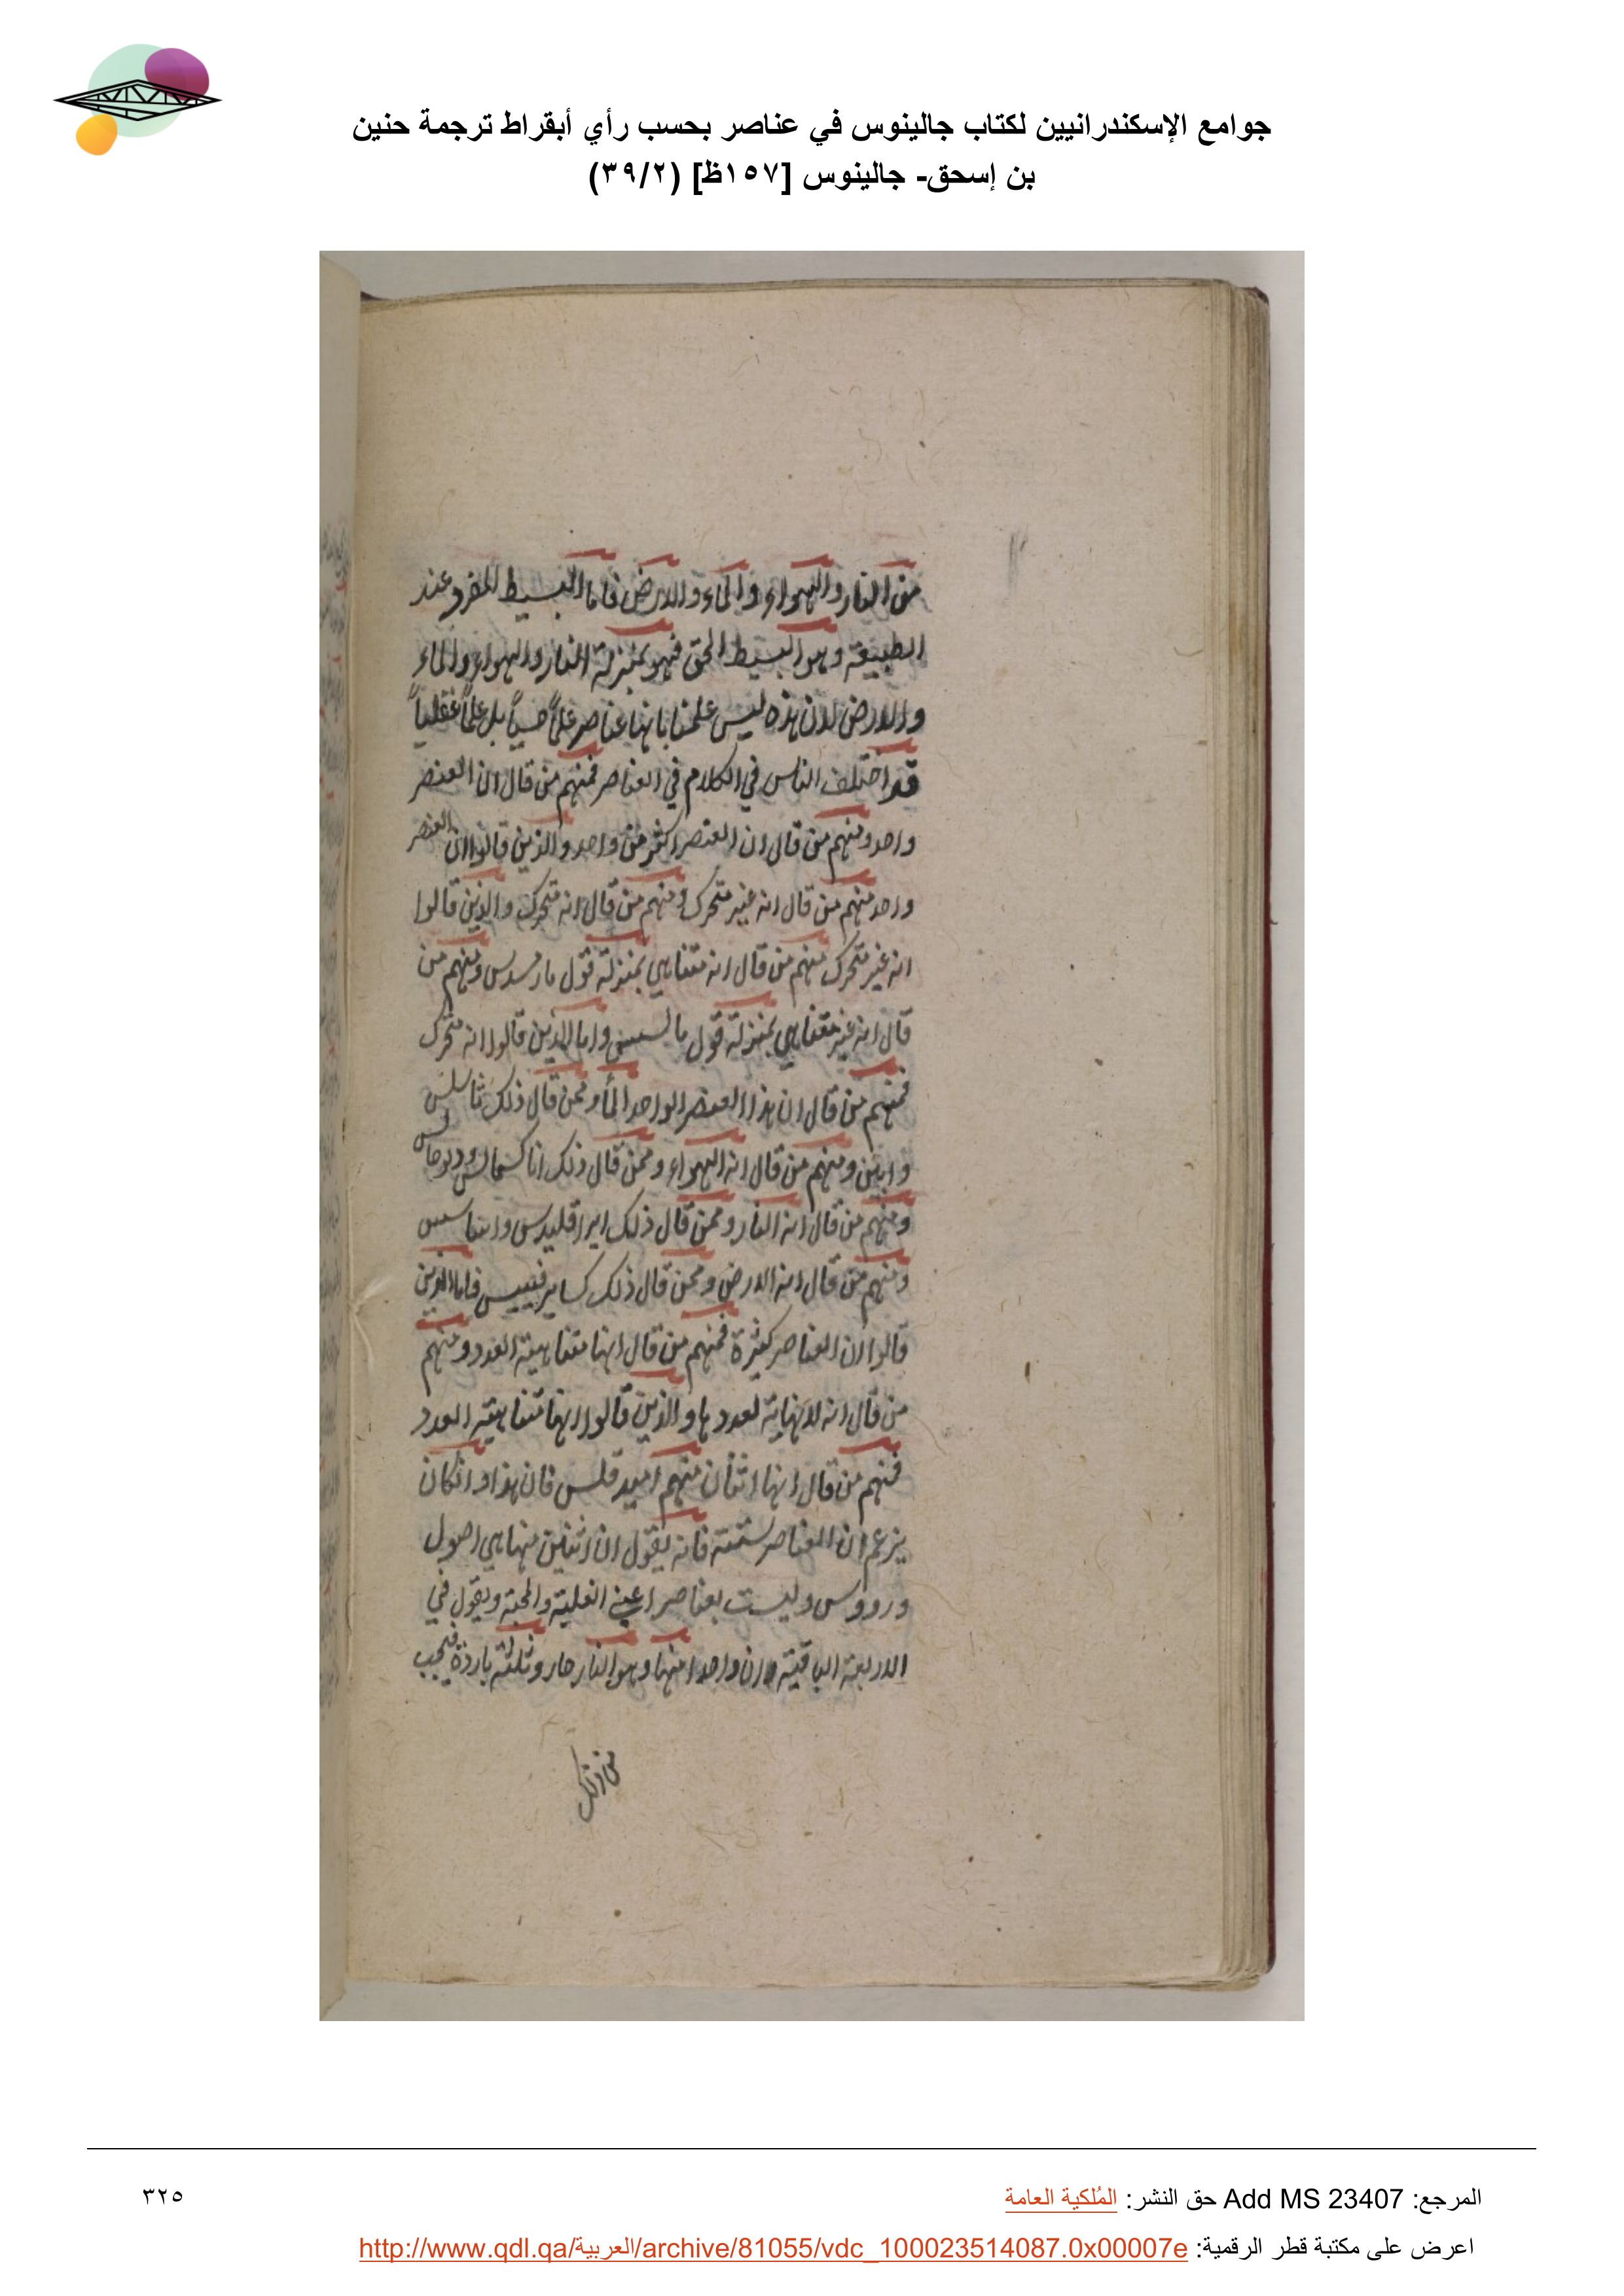 جوامع الإسكندرانيين لكتاب جالينوس في عناصر بحسب رأي أبقراط ترجمة حنين
بن إسحق- جالينوس [١٥٧ظ] (٣٩/٢)
من النار والهواء والماء والارض فاما البسيط المفرد عند
الطبيعة وهو البسيط الحق فهو بمنزلة النار والهواء والماء
والارض لان هذه ليس علمنا بانها عناصر علماً حسياً بل علماً عقلياً
قد اختلف الناس في الكلام في العناصر فمنهم من قال ان العنصر
واحد ومنهم من قال ان العنصر اكثر من واحد والذين قالوا ان العنصر
واحد منهم من قال انه غير متحرك ومنهم من قال انه متحرك والذين قالوا
انه غير متحرك منهم من قال انه متناهي بمنزلة قول ومنهم من
قال انه غير متناهي بمنزلة قول مالسيس واما الذين قالوا انه متحرك
فمنهم من قال ان هذا العنصر الواحد الماء وممن قال ذلك ثاسلس
وابين ومنهم من قال انه الهواء وممن قال ذلك اناكسمالس وديوجالس
ومنهم من قال انه النار وممن قال ذلك ايراقليدس
ومنهم من قال انه الارض وممن قال ذلك فاما الذين
قالوا ان العناصر كثيرة فمنهم من قال انها متناهية العدد ومنهم
من قال انه لا نهاية لعددها والذين قالوا انها متناهية العدد
فمنهم من قال انها اثنان منهم اميدقلس فان هذا وان كان
يزعم ان العناصر ستة فانه يقول ان اثنين منها هي اصول
ورووس وليست بعناصر اعني الغلبة والمحبة ويقول في
الاربعة الباقية ان واحدا منها وهو النار حار وثلثة باردة فيجب
من ذلك
المرجع: Add MS 23407 حق النشر: المُلكية العامة
٣٢٥
اعرض على مكتبة قطر الرقمية: http://www.qdl.qa/العربية/archive/81055/vdc_100023514087.0x00007e